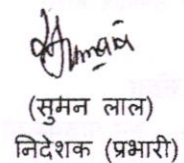 (सुमन लाल)
निदेशक (प्रभारी)